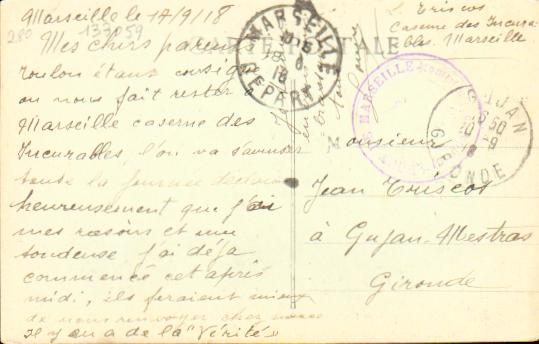 Marseille le 17/9/18
280 137059
Mes chers parents
Toulon étant consigné
on nous fait rester à
Marseille caserne des
Incurables, l'on va s'amuser
toute la journée
heureusement que j'ai
mes rasoirs et mon
tondeuse j'ai déjà
commencé cet après
midi, ils feraient mieux
de nous renvoyer chez nous
il y en a de la "Vérité"
CARTE POSTALE
MARSEILLE
DEPART
18
Caserne des Incura-
bles. Marseille
MARSEILLE
GUJAN
GIRONDE
Monsieur
Jean
à Gujan-Mestras
Gironde